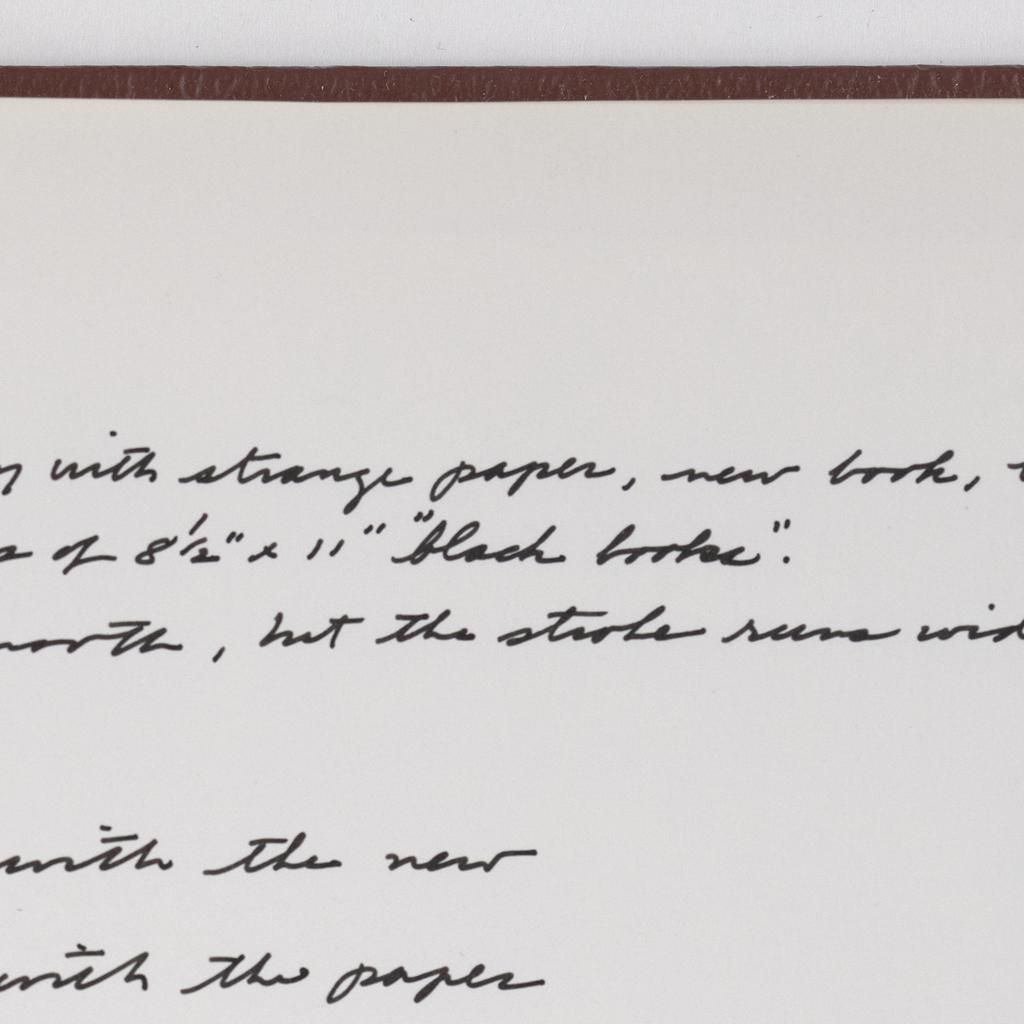 with strange paper, new book,
of 8 1/2" x 11" "black books".
smooth, but the stroke runs wid
with the new
with the paper